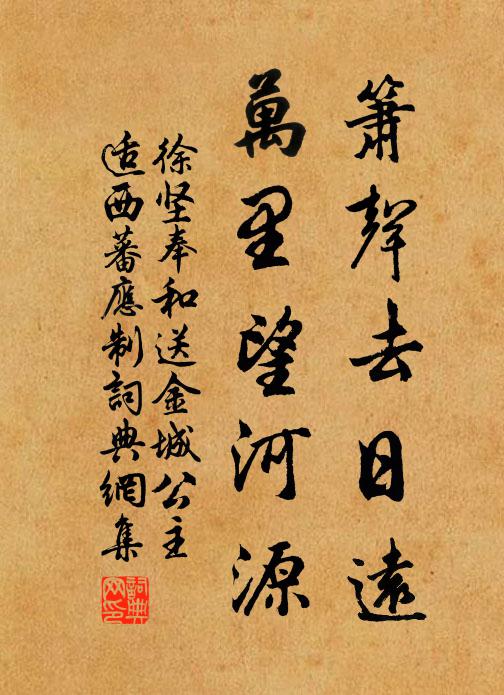 簫聲去日遠
萬里望河源
徐坚奉和送金城公主
适西蕃應制詞典網集
詞典网印